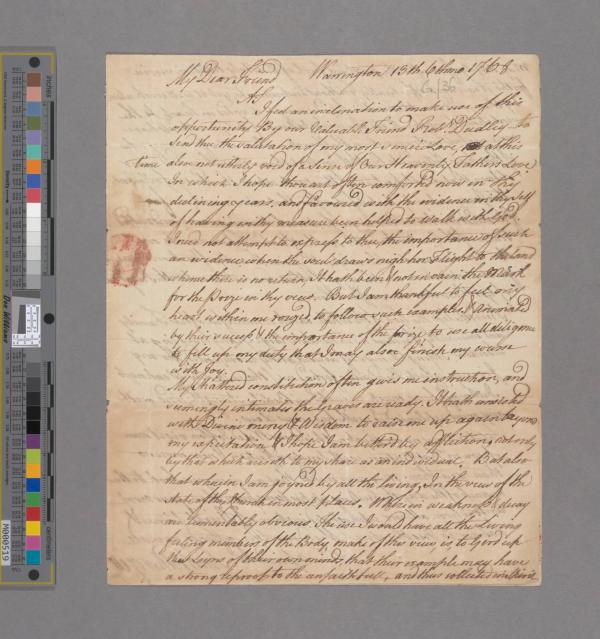 My Dear Friend Warrington 13th 6th mo 1768
As
I feel an inclination to make use of this
opportunity By our Valuable Friend Robt Dudley to
Send thee the Salutation of my most Sincere Love, not at this
time alone not utterly void of a Sense of Our Heavenly Fathers Love
In which I hope thou art often comforted now in thy
declining years, and favoured with the evidence in thy self
of having in thy measure been helped to Walk with God.
I need not attempt to express to thee, the importance of such
an evidence when the soul draws nigh her flight to the land
whence there is no return, It hath been not in vain the Mark
for the prize in thy view. But I am thankful to feel my
heart within me rouzed, to follow such examples, & animated
by their success & the importance of the prize, to use all diligence
to fill up my duty that I may also finish my course
with Joy.
My shattered constitution often gives me instruction, and
seemingly intimates the Graves are ready. It hath consisted
with Divine mercy & Wisdom to raise me up again beyond
my expectation & I hope I am bettered by affliction, not only
by that which falleth to my share as an individual, But also
that wherein I am joyned by all the living, In the view of the
State of the Church in most places, Wherein weakness & decay
are lamentably obvious. The use I would have all the Living
feeling members of the Body make of this view is to Gird up
the Loyns of their own minds that their example may have
a strong reproof to the unfaithfull, and thus collected in Spirit
M000519
inches
centimeters
Don Williams